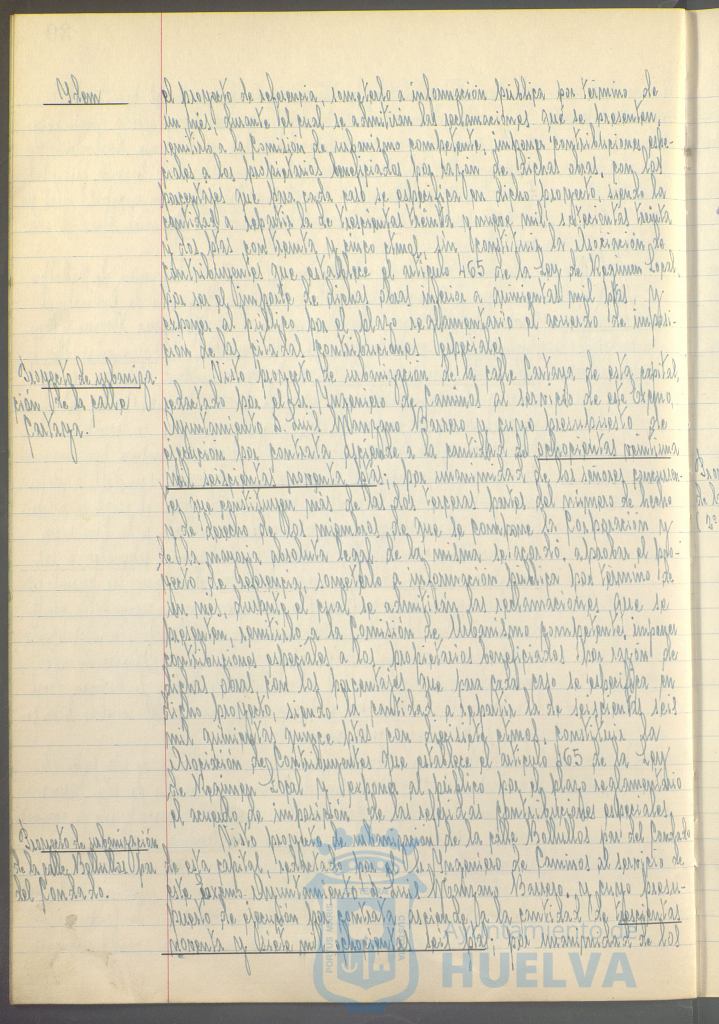 Idem
el proyecto de referencia, someterlo a información pública por término de
un mes, durante el cual se admitirán las reclamaciones que se presenten,
remitirlo a la Comisión de Urbanismo competente, imponer contribuciones espe-
ciales a los propietarios beneficiados por razón de dichas obras, con los
porcentajes que para cada caso se especifica en dicho proyecto, siendo la
cantidad a repartir la de trescientas treinta y nueve mil setecientas treinta
y dos ptas con treinta y cinco ctmos, sin constituir la Asociación de
Contribuyentes que establece el artículo 465 de la Ley de Régimen Local,
por ser el importe de dichas obras inferior a quinientas mil ptas, y
exponer al público por el plazo reglamentario el acuerdo de imposi-
ción de las citadas contribuciones especiales.
Proyecto de urbaniza-
ción de la calle
Cartaya.
Visto proyecto de urbanización de la calle Cartaya de esta capital,
redactado por el Sr. Ingeniero de Caminos al servicio de este Excmo.
Ayuntamiento D. Luis Manzano Barrero y cuyo presupuesto de
ejecución por contrata asciende a la cantidad de ochocientas
mil seiscientas noventa ptas; por unanimidad de los señores concurren-
tes que constituyen más de las dos terceras partes del número de hecho
y de derecho de los miembros de que se compone la Corporación y
de la mayoría absoluta legal de la misma se acordó, aprobar el pro-
yecto de referencia, someterlo a información pública por término de
un mes, durante el cual se admitirán las reclamaciones que se
presenten, remitirlo a la Comisión de Urbanismo competente, imponer
contribuciones especiales a los propietarios beneficiados por razón de
dichas obras con los porcentajes que para cada caso se especifica en
dicho proyecto, siendo la cantidad a repartir la de seiscientas seis
mil quinientas quince ptas con diecisiete ctmos, constituir la
Asociación de Contribuyentes que establece el artículo 465 de la Ley
de Régimen Local y exponer al público por el plazo reglamentario
el acuerdo de imposición de las referidas contribuciones especiales.
Proyecto de urbanización
de la calle Bollullos par
del Condado.
Visto proyecto de urbanización de la calle Bollullos par del Condado
de esta capital, redactado por el Sr. Ingeniero de Caminos al servicio de
este Excmo. Ayuntamiento D. Luis Manzano Barrero, y cuyo presu-
puesto de ejecución por contrata asciende a la cantidad de
noventa y siete mil ochocientas seis ptas; por unanimidad de los
Ayuntamiento de
HUELVA